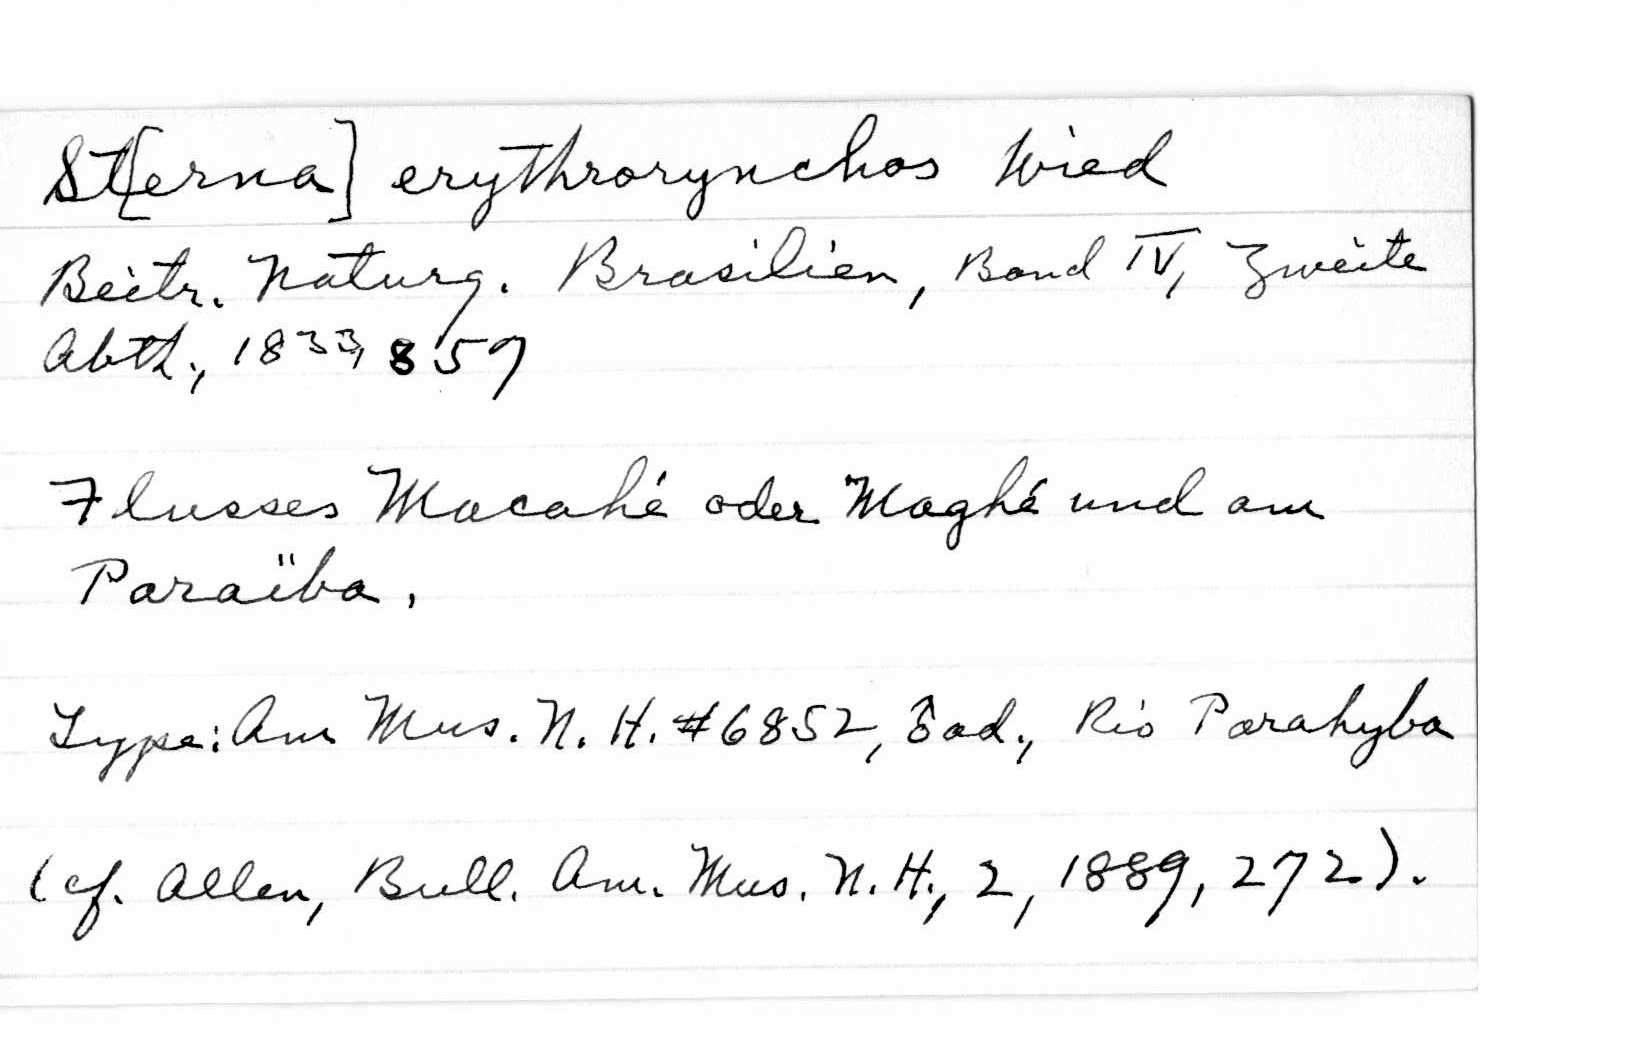 St[erna] erythrorynchos Wied
Beitr. Naturg. Brasilien, Band IV, Zweite
Abth., 1833, 857
Flusses Macahé oder Maghé und am
Paraïba.
Type: Am Mus. N. H. #6852, ♂ ad., Rio Parahyba
(cf. Allen, Bull. Am. Mus. N. H., 2, 1889, 272).